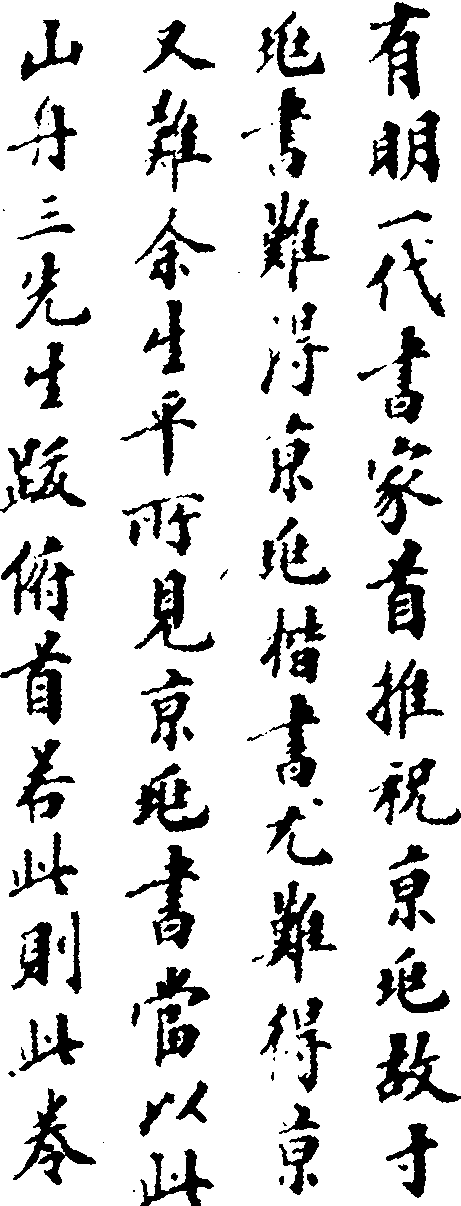 有明一代書家首推祝京兆故寸
兆書難得京兆楷書尤難得京
又難余生平所見京兆書當以此
山舟三先生跋俯首若此則此卷